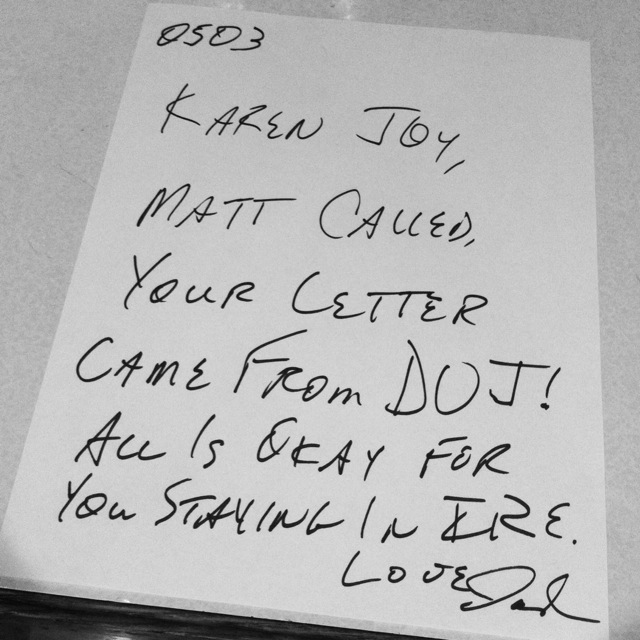 0503
KAREN JOY,
MATT CALLED,
YOUR LETTER
CAME FROM DOJ!
ALL IS OKAY FOR
YOU STAYING IN IRE.
LOVE Dad